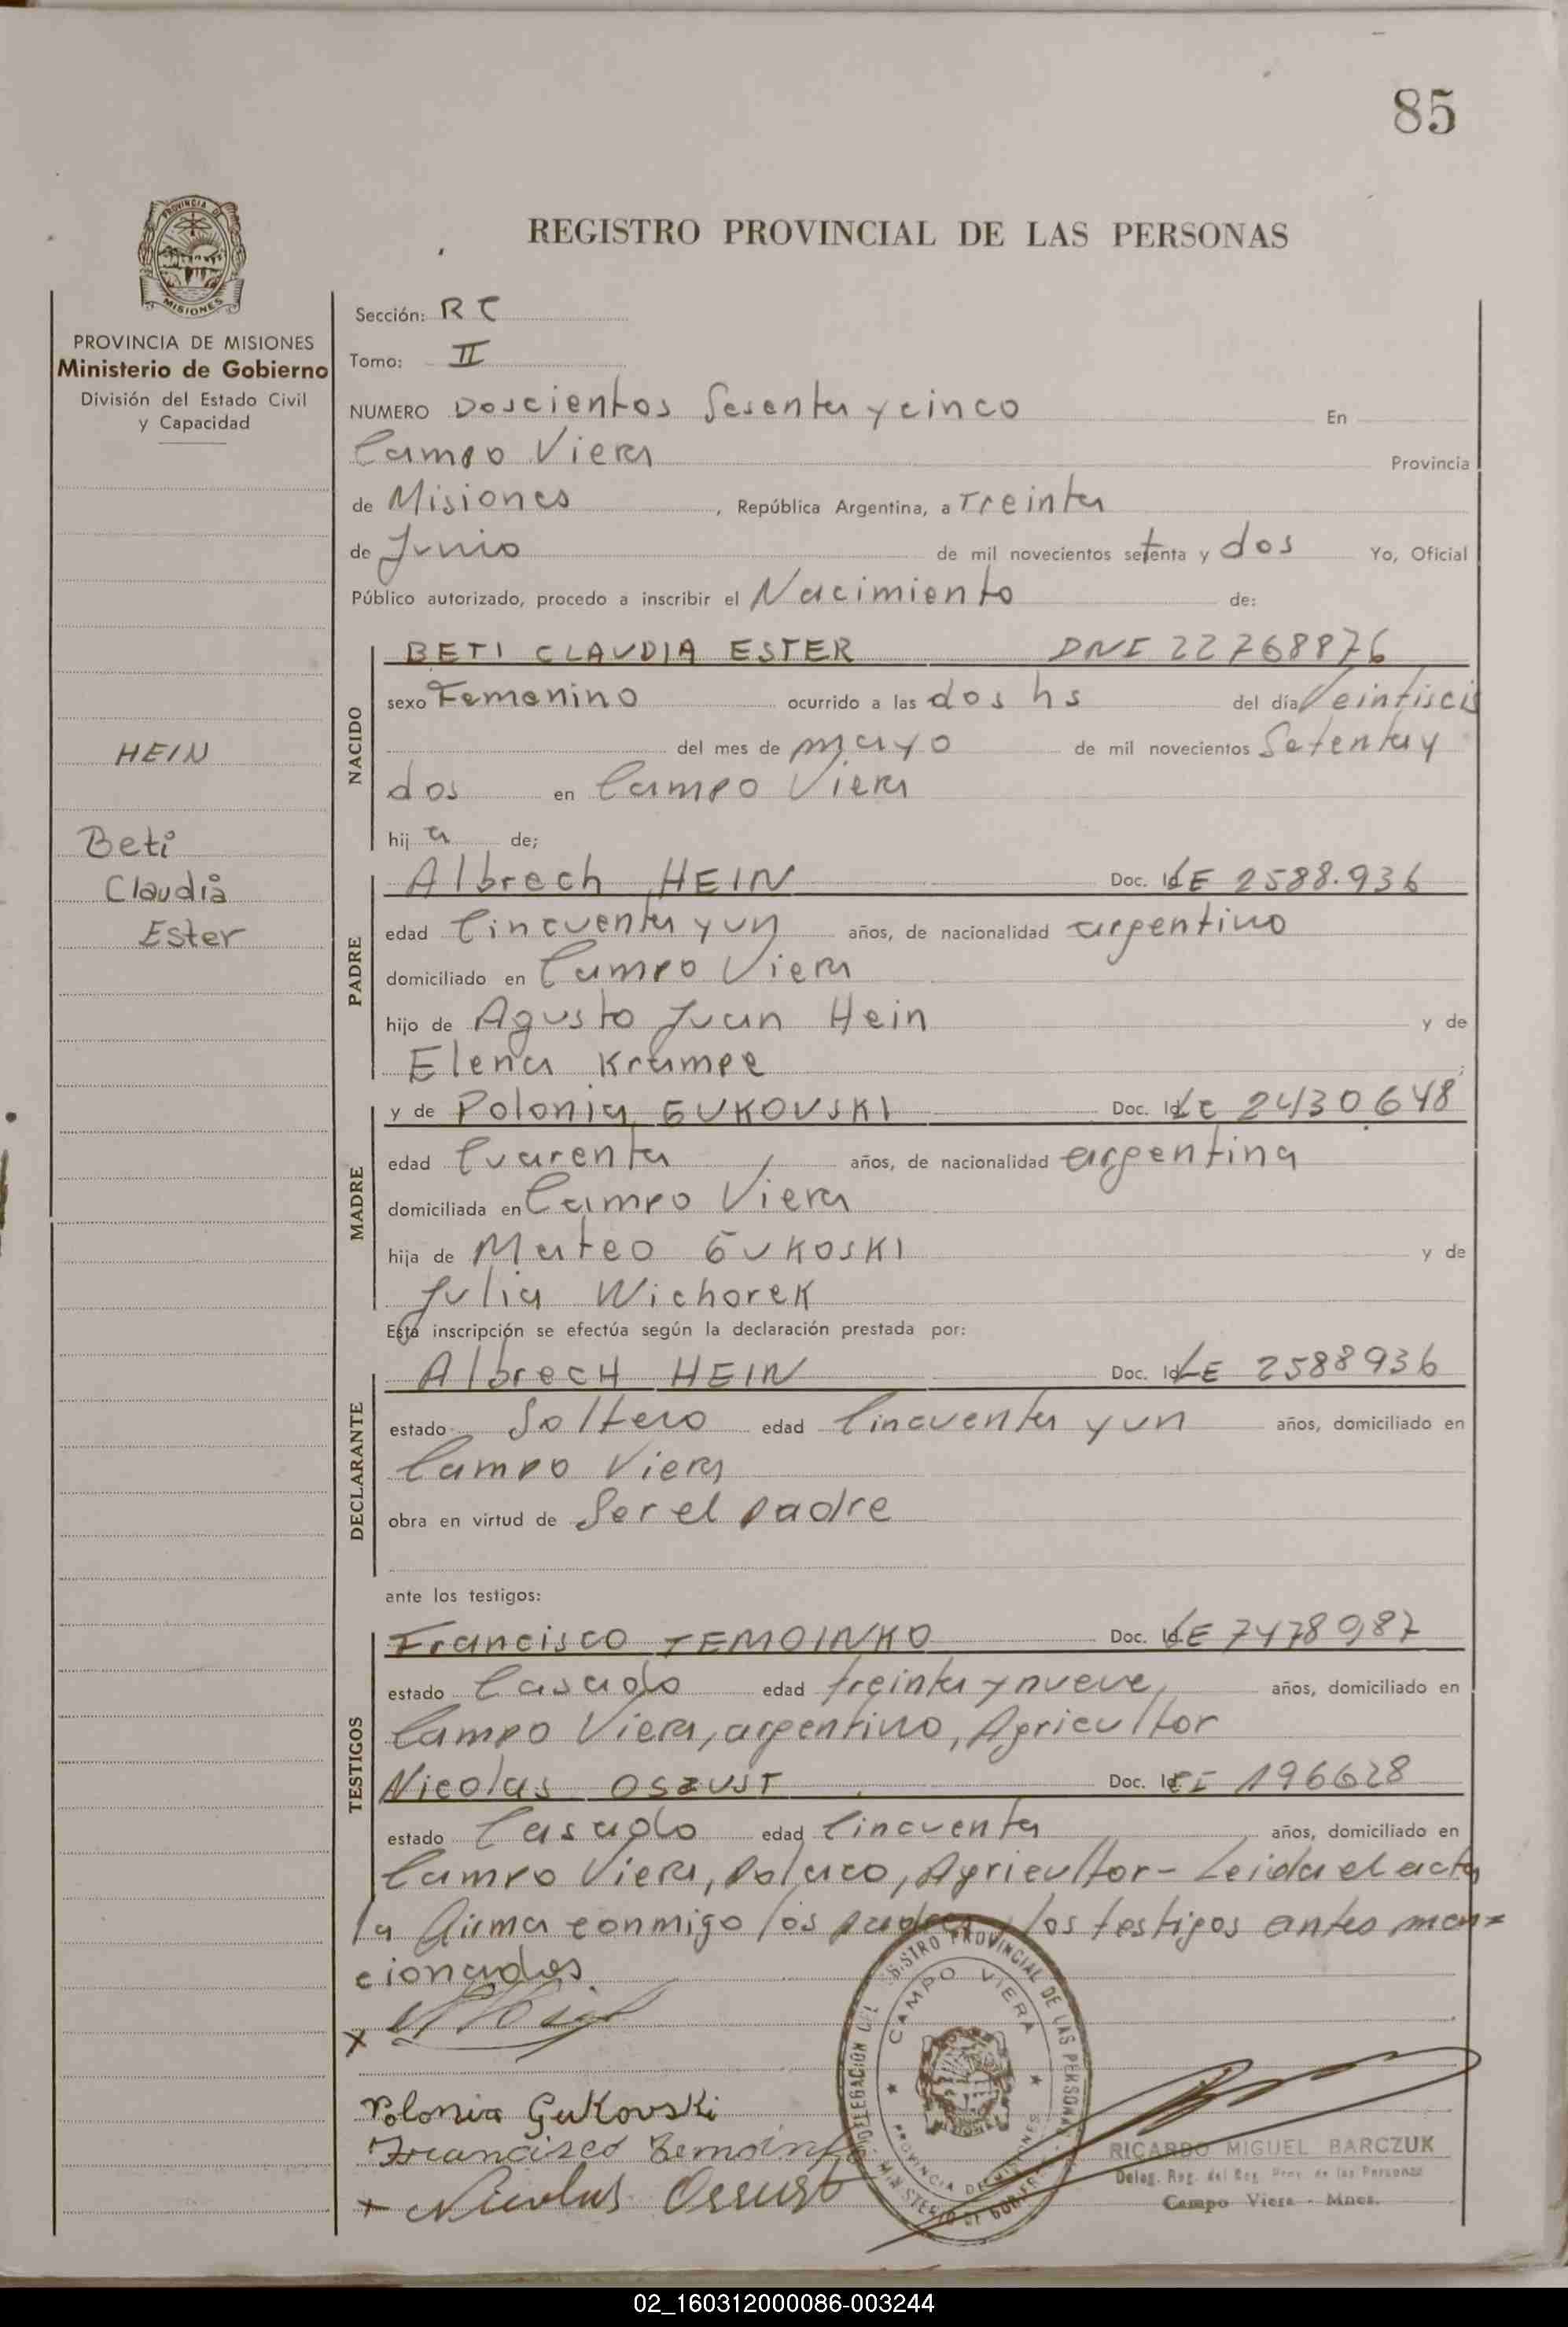 85
PROVINCIA DE
MISIONES
REGISTRO PROVINCIAL DE LAS PERSONAS
PROVINCIA DE MISIONES
Ministerio de Gobierno
División del Estado Civil
y Capacidad
HEIN
Beti
Claudia
Ester
Sección: RC
Tomo: II
NUMERO Doscientos Sesenta y cinco En
Campo Viera Provincia
de Misiones, República Argentina, a Treinta
de Junio de mil novecientos setenta y dos Yo, Oficial
Público autorizado, procedo a inscribir el Nacimiento de:
NACIDO
BETI CLAUDIA ESTER DNI 22768876
sexo Femenino ocurrido a las dos hs del día Veintiseis
del mes de mayo de mil novecientos Setenta y
dos en Campo Viera
hija de;
PADRE
Albrech HEIN Doc. Id. LE 2588.936
edad Cincuenta y un años, de nacionalidad argentino
domiciliado en Campo Viera
hijo de Agusto Juan Hein y de
Elena Krampe
MADRE
y de Polonia GUKOVSKI Doc. Id. LC 2430648
edad Cuarenta años, de nacionalidad argentina
domiciliada en Campo Viera
hija de Mateo GUKOSKI y de
Julia Wichorek
Esta inscripción se efectúa según la declaración prestada por:
DECLARANTE
AlbrecH HEIN Doc. Id. LE 2588936
estado Soltero edad Cincuenta y un años, domiciliado en
Campo Viera
obra en virtud de Ser el padre
ante los testigos:
TESTIGOS
Francisco TEMOINKO Doc. Id. LE 7478087
estado Casado edad treinta y nueve, años, domiciliado en
Campo Viera, argentino, Agricultor
Nicolas OSZUST Doc. Id. CI 196628
estado Casado edad Cincuenta años, domiciliado en
Campo Viera, polaco, Agricultor - Leida el acta
la firma conmigo los padres y los testigos antes men=
cionados.
Polonia Gukovski
Francisco
Nicolas Oszust
SUBDELEGACION DEL REGISTRO PROVINCIAL DE LAS PERSONAS
CAMPO VIERA
PROVINCIA DE MISIONES
MINISTERIO DE GOBIERNO
RICARDO MIGUEL BARCZUK
Deleg. Reg. del Reg. Prov. de las Personas
Campo Viera - Mnes.
02_160312000086-003244